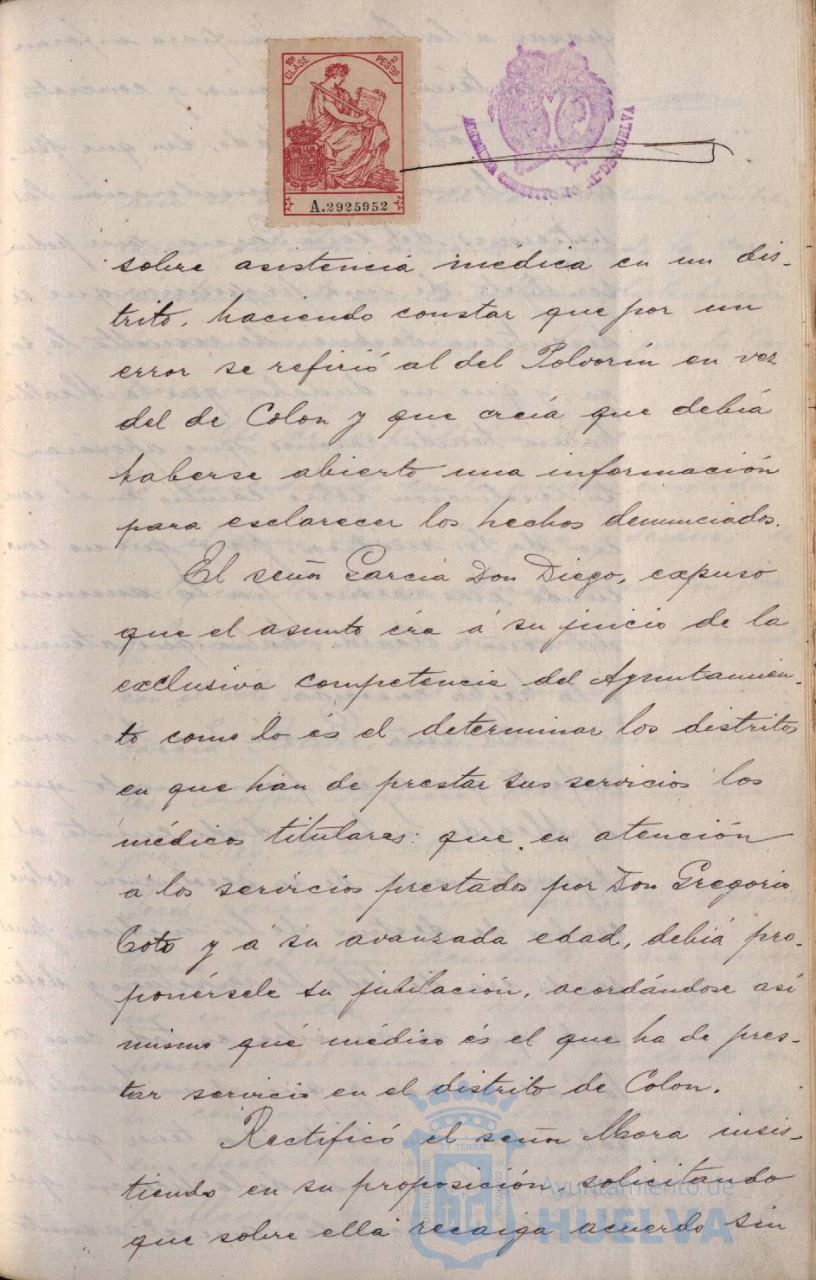 10ª CLASE 2 PESTAS
A.2925952
sobre asistencia medica en un dis-
trito, haciendo constar que por un
error se refirió al del Polvorin en vez
del de Colon y que creía que debia
haberse abierto una información
para esclarecer los hechos denunciados.
El señor Garcia Don Diego, expuso
que el asunto éra á su juicio de la
exclusiva competencia del Ayuntamien-
to como lo és el determinar los distritos
en que han de prestar sus servicios los
médicos titulares: que en atención
á los servicios prestados por Don Gregorio
Coto y á su avanzada edad, debiá pro-
ponérsele su jubilación, acordándose así
mismo qué médico és el que ha de pres-
tar servicio en el distrito de Colon.
Rectificó el señor Mora insis-
tiendo en su proposición, solicitando
que sobre ella recaiga acuerdo sin
Ayuntamiento de
HUELVA